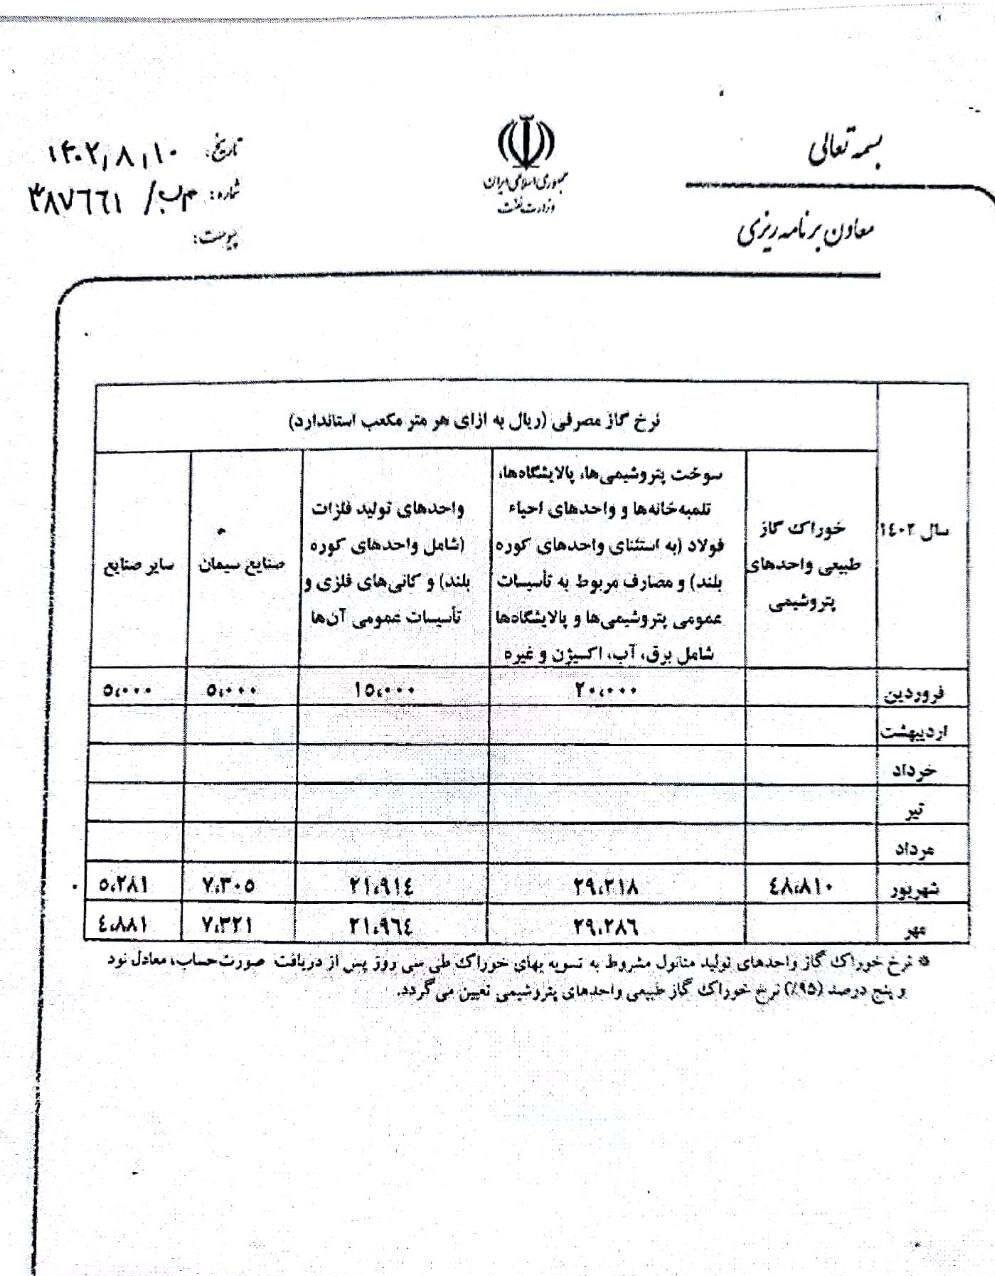 بسمه تعالی
جمهوری اسلامی ایران
وزارت نفت
معاون برنامه ریزی
تاریخ: ۱۴۰۲/۸/۱۰
شماره: م ب/ ۳۸۷۶۶۱
پیوست:
نرخ گاز مصرفی (ریال به ازای هر متر مکعب استاندارد)
سال ۱۴۰۲
خوراک گاز
طبیعی واحدهای
پتروشیمی
سوخت پتروشیمی‌ها، پالایشگاه‌ها،
تلمبه‌خانه‌ها و واحدهای احیاء
فولاد (به استثنای واحدهای کوره
بلند) و مصارف مربوط به تأسیسات
عمومی پتروشیمی‌ها و پالایشگاه‌ها
شامل برق، آب، اکسیژن و غیره
واحدهای تولید فلزات
(شامل واحدهای کوره
بلند) و کانی‌های فلزی و
تأسیسات عمومی آن‌ها
صنایع سیمان
سایر صنایع
فروردین ۲۰،۰۰۰ ۱۵،۰۰۰ ۵،۰۰۰ ۵،۰۰۰
اردیبهشت
خرداد
تیر
مرداد
شهریور ۴۸،۸۱۰ ۲۹،۲۱۸ ۲۱،۹۱۴ ۷،۳۰۵ ۵،۲۸۱
مهر ۲۹،۲۸۶ ۲۱،۹۶۴ ۷،۳۲۱ ۴،۸۸۱
* نرخ خوراک گاز واحدهای تولید متانول مشروط به تسویه بهای خوراک طی سی روز پس از دریافت صورت‌حساب، معادل نود
و پنج درصد (۹۵٪) نرخ خوراک گاز طبیعی واحدهای پتروشیمی تعیین می‌گردد.